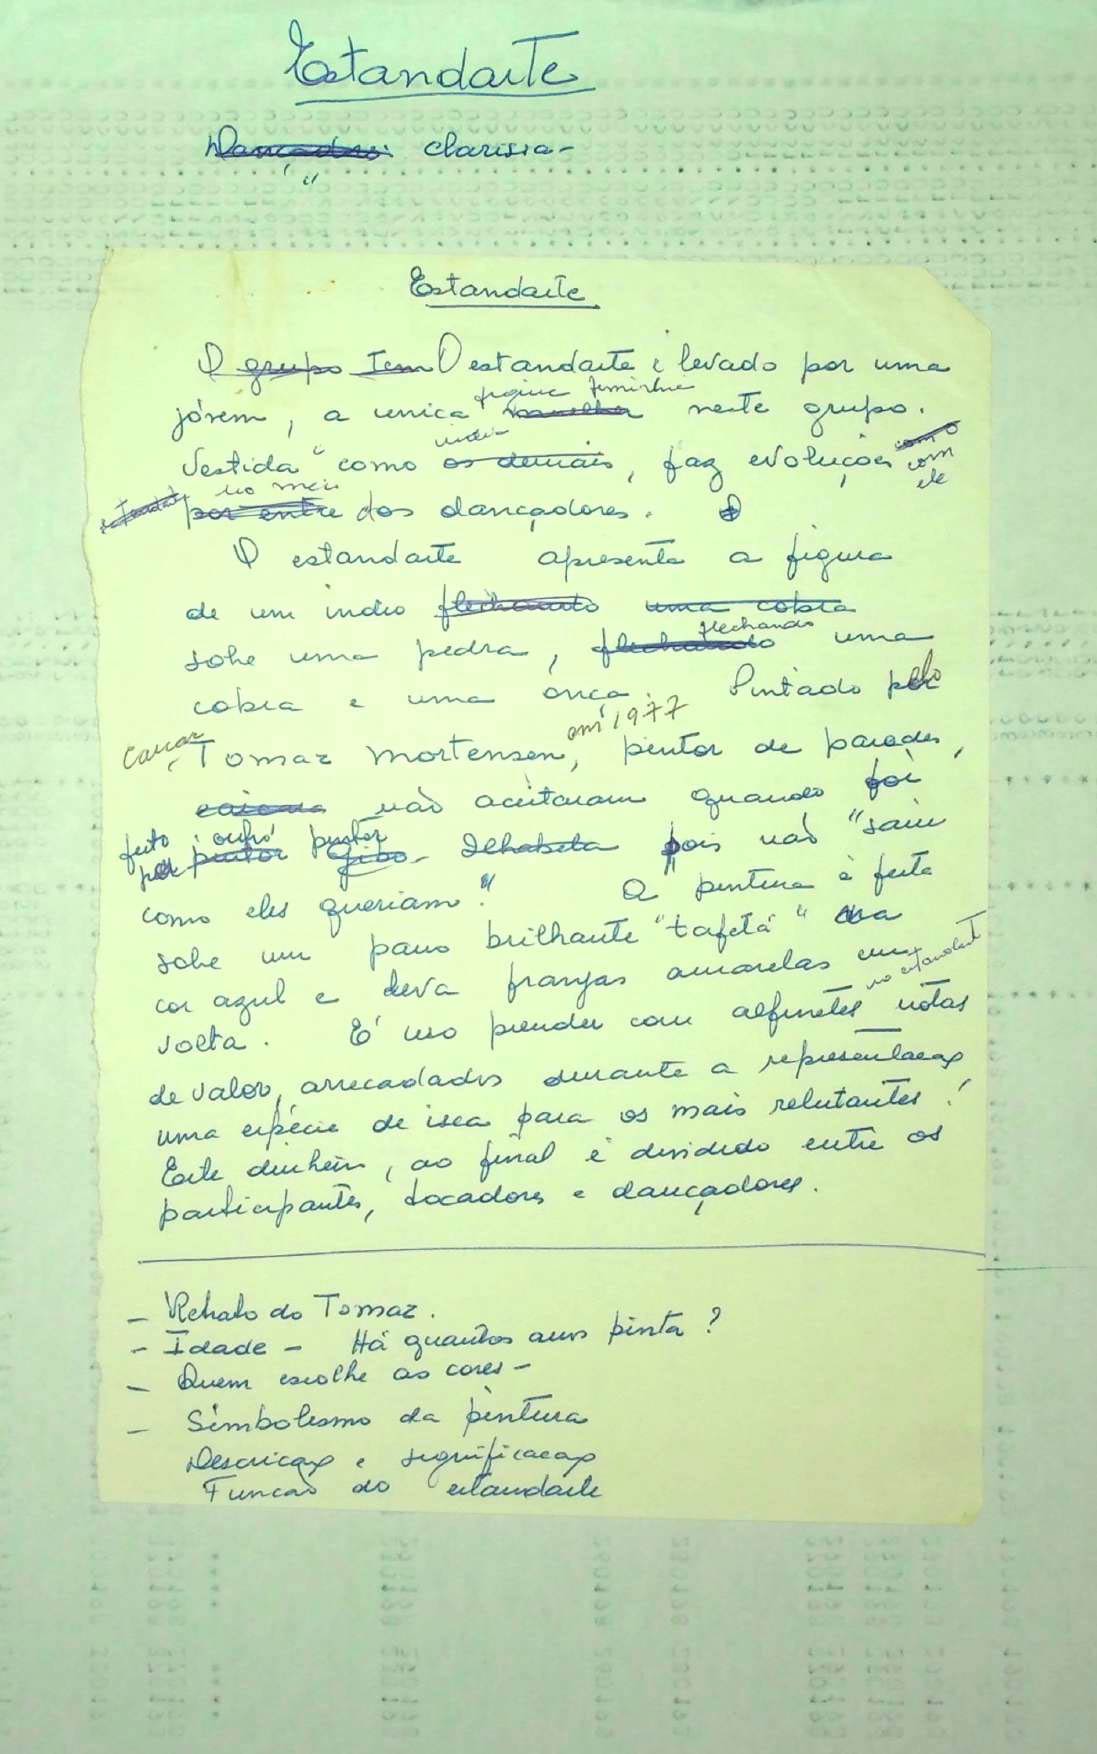 Estandarte
Dançadores: Clarissa -
"
Estandarte
O grupo tem O estandarte é levado por uma
figura feminina
jóvem, a unica neste grupo.
índia
Vestida "como os demais, faz evoluções como
com
ele
no meio
por entre dos dançadores. O
O estandarte apresenta a figura
de um indio flechando uma cobra
flechando
sobe uma pedra, flechando uma
cobra e uma onça. Pintado pelo
em 1977
Caiçara, Tomaz Mortensen, pintor de paredes,
caiçara não aceitaram quando foi
feito outro pintor
por pintor Gino - Ilhabela pois não "saiu
como eles queriam". A pintura é feita
sobe um pano brilhante "tafetá" da
cor azul e leva franjas amarelas em
no estandarte
volta. É uso prender com alfinetes notas
de valor, arrecadados durante a representação
uma espécie de isca para os mais relutantes!
Este dinheiro, ao final é dividido entre os
participantes, tocadores e dançadores.
- Retrato do Tomaz.
- Idade - Há quantos anos pinta?
- Quem escolhe as cores -
- Simbolismo da pintura
Descrição e significação
Função do estandarte